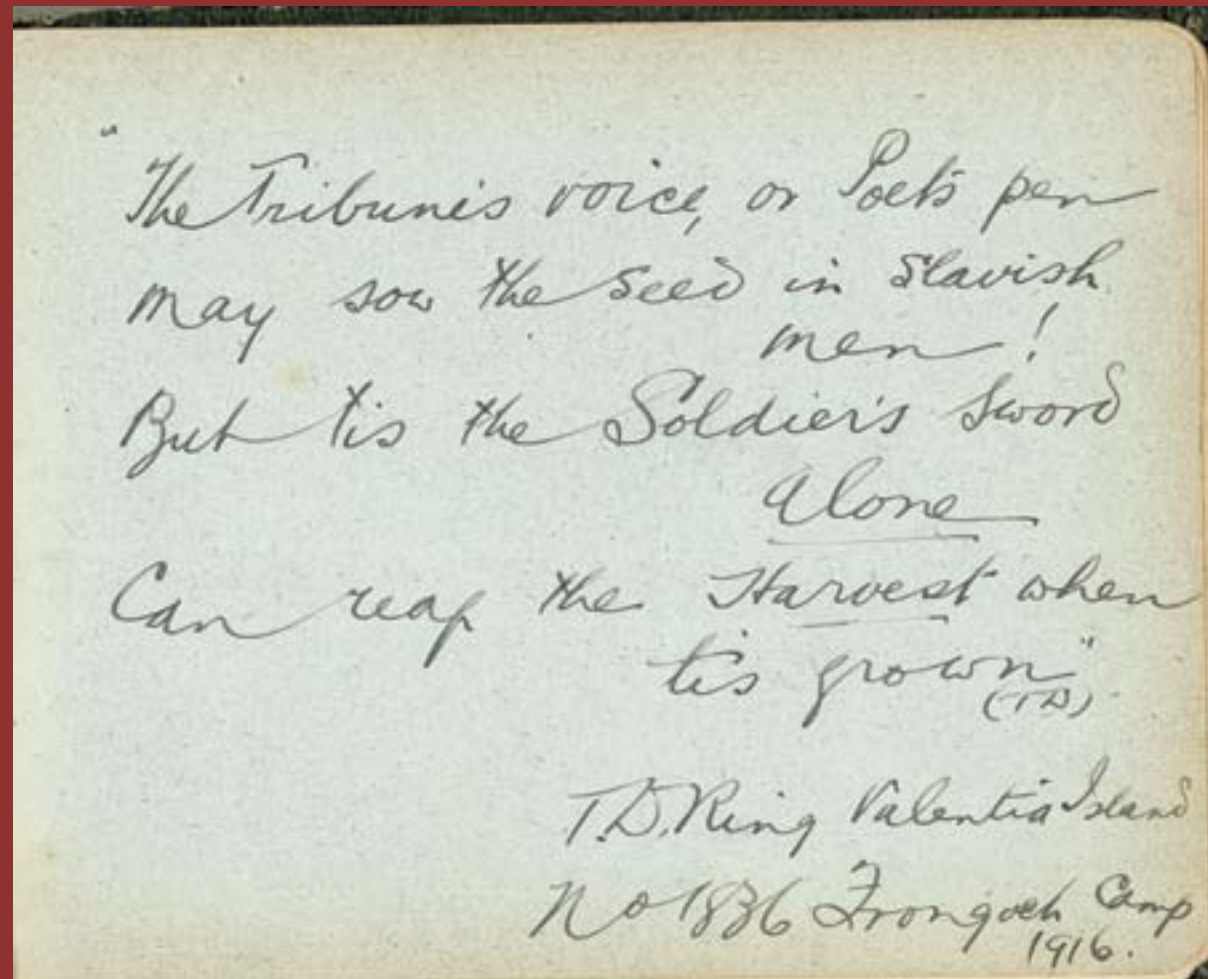 "The Tribune's voice, or Poet's pen
may sow the seed in Slavish
men!
But 'tis the Soldier's sword
Alone
Can reap the Harvest when
tis grown"
(TD)
T.D. Ring Valentia Island
No 1836 Frongoch Camp
1916.